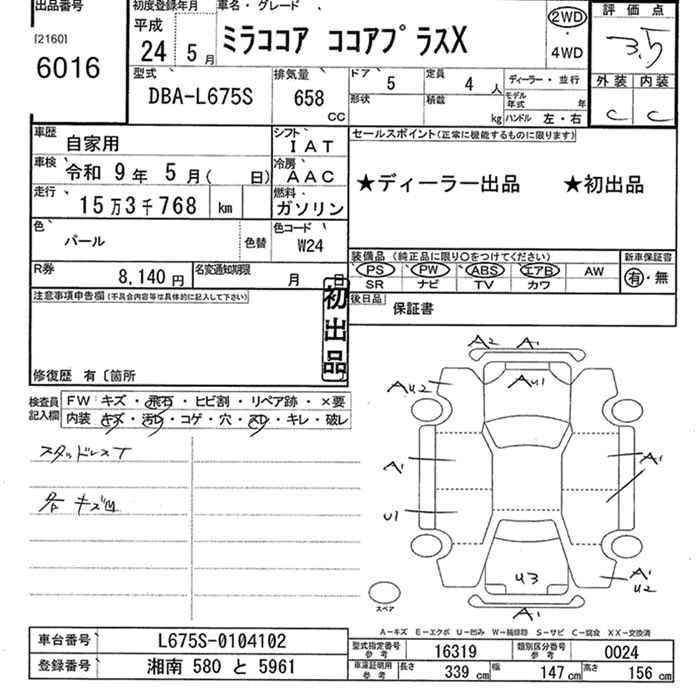 出品番号
[2160]
6016
初度登録年月
平成
24年 5月
車名・グレード
ミラココア ココアプラスX
2WD
・
4WD
評価点
3.5
外装 内装
C C
型式
DBA-L675S
排気量
658
CC
ドア
5
定員
4人
形状
積載
kg
ディーラー・並行
モデル年式 年
ハンドル 左・右
車歴
自家用
シフト
IAT
車検
令和 9年 5月( 日)
冷房
AAC
走行
15万3千768 km
燃料
ガソリン
色
パール
色替
色コード
W24
R券
8,140円
名変通知期限
月 日
セールスポイント(正常に機能するものに限ります)
★ディーラー出品 ★初出品
装備品 (純正品に限り〇をつけてください)
PS PW ABS エアB AW
SR ナビ TV カワ
新車保証書
有・無
後日品
保証書
注意事項申告欄(不具合内容等は具体的に記入して下さい)
初出品
修復歴 有〔箇所
検査員記入欄
FW キズ・飛石・ヒビ割・リペア跡・×要
内装 キズ・汚レ・コゲ・穴・スレ・キレ・破レ
スタッドレスT
各キズ凹
A2 A1
AU2
AU1
A1
A1
U1
U3
A1
U2
A1
スペア
A-キズ E-エクボ U-凹み W-補修跡 S-サビ C-腐食 XX-交換済
車台番号
L675S-0104102
登録番号
湘南 580 と 5961
型式指定番号
参考
16319
類別区分番号
参考
0024
車庫証明用
参考
長さ
339 cm
幅
147 cm
高さ
156 cm